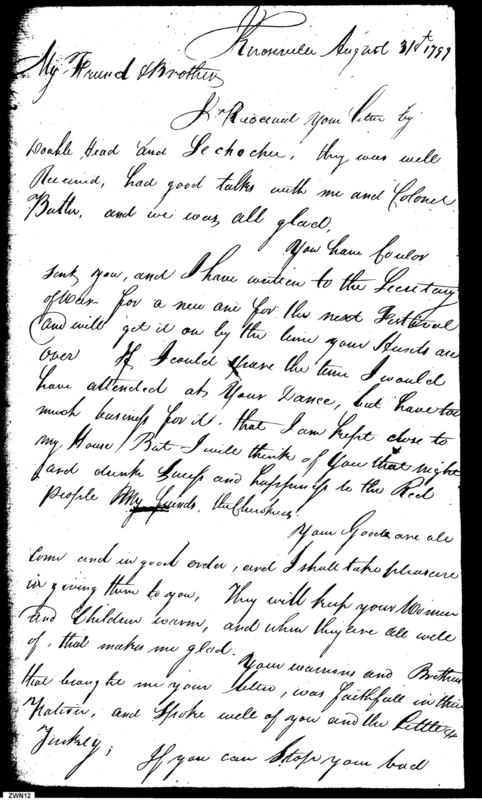 Knoxville August 31st 1799
My Friend & Brother
I Received your letter by
Double Head and Sechochee, they was well
Received, had good talks with me and Colonel
Butler, and we was all glad,
You have Coulor
sent you, and I have written to the Secretary
of War for a new one for the next Festival
and will get it on by the time your Hunts are
over If I could spare the time I would
have attended at Your Dance, but have too
much business for it, that I am kept close to
my House, But I will think of you that night
and drink Sucess and happiness to the Red
people My friends, the Cherokees.
Your Goods are all
come and in good order, and I shall take pleasure
in giving them to you, They will keep your Women
and Children warm, and when they are all well
of, that makes me glad.
Your warriors and Brothers
that brought me your letter, was faithfull in their
Nation, and Spoke well of you and the Little
Turkey;
If you can Stop your bad
ZWN12